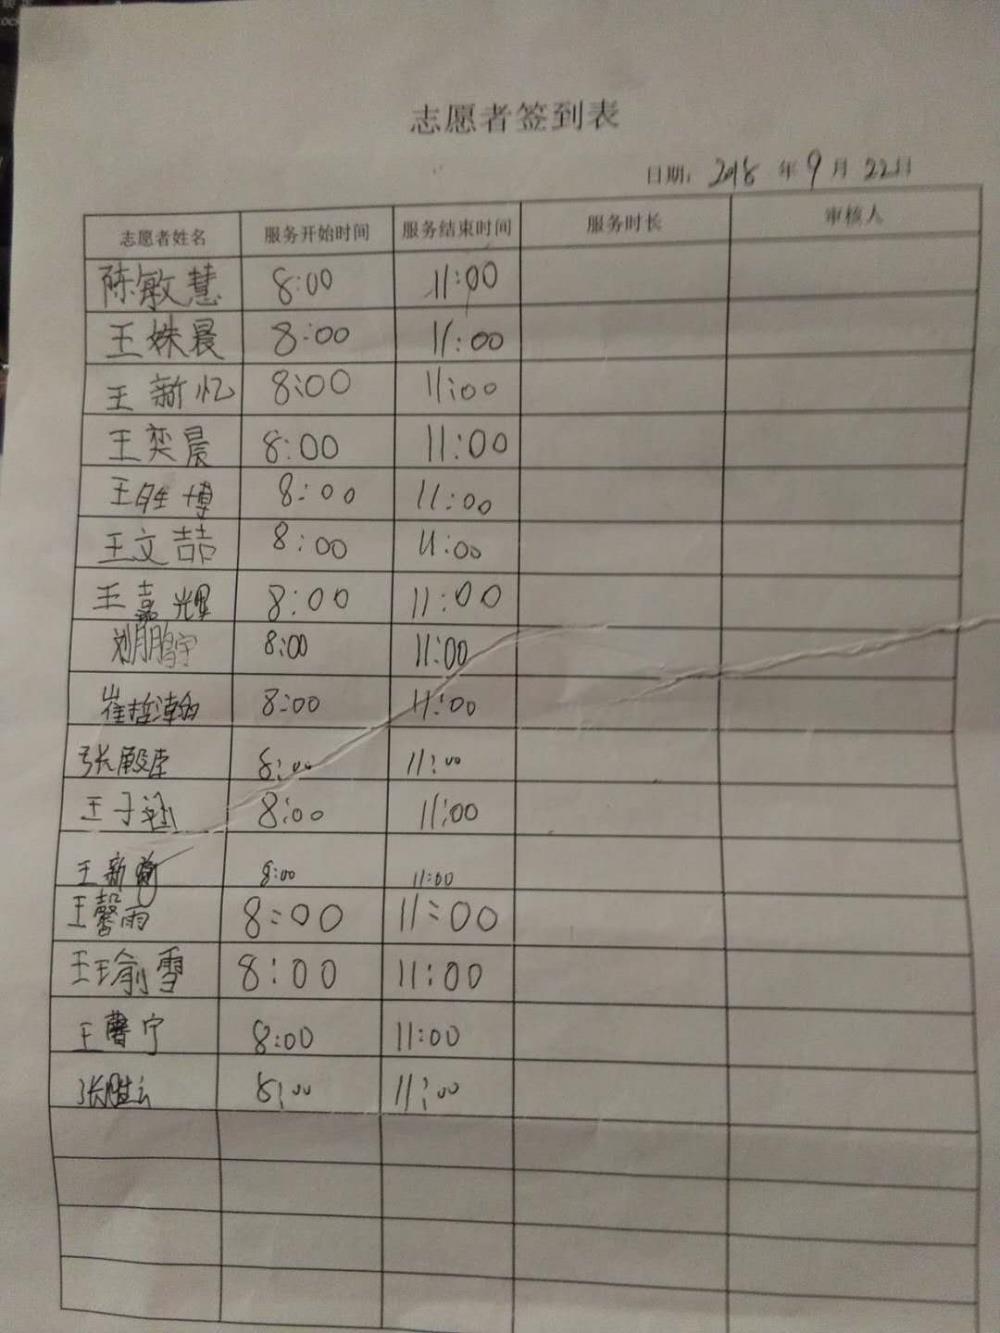 志愿者签到表
日期: 2018 年 9 月 22日
志愿者姓名 服务开始时间 服务结束时间 服务时长 审核人
陈敏慧 8:00 11:00
王姝晨 8:00 11:00
王新忆 8:00 11:00
王奕晨 8:00 11:00
王胜博 8:00 11:00
王文喆 8:00 11:00
王嘉耀 8:00 11:00
刘鹏宇 8:00 11:00
崔哲瀚 8:00 11:00
张殿臣 8:00 11:00
王子涵 8:00 11:00
王新 8:00 11:00
王馨雨 8:00 11:00
王瑜雪 8:00 11:00
王馨宁 8:00 11:00
张胜云 8:00 11:00